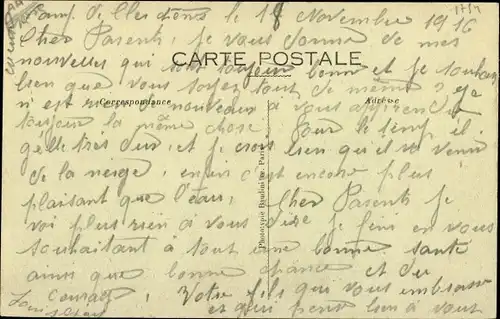 Camp de le 18 Novembre 1916
Cher Parents, je vous donne de mes
CARTE POSTALE
nouvelles qui sont toujour bonne et je souhait
bien que vous soyez tout de meme? ge
Correspondance
Adresse
n'est rien nouveaux a vous
toujour la même chose. Pour le temp il
gele tres dur et je crois bien qu'il va venir
de la neige, enfin c'est encore plus
plaisant que l'eau. Cher Parents je
voi plus rien à vous dire je fini en vous
souhaitant à tout une bonne santé
ainsi que bonne chance et du
courage, Votre fils qui vous embrasse
et qui pense bien à vous
Phototypie Baudinière, Paris